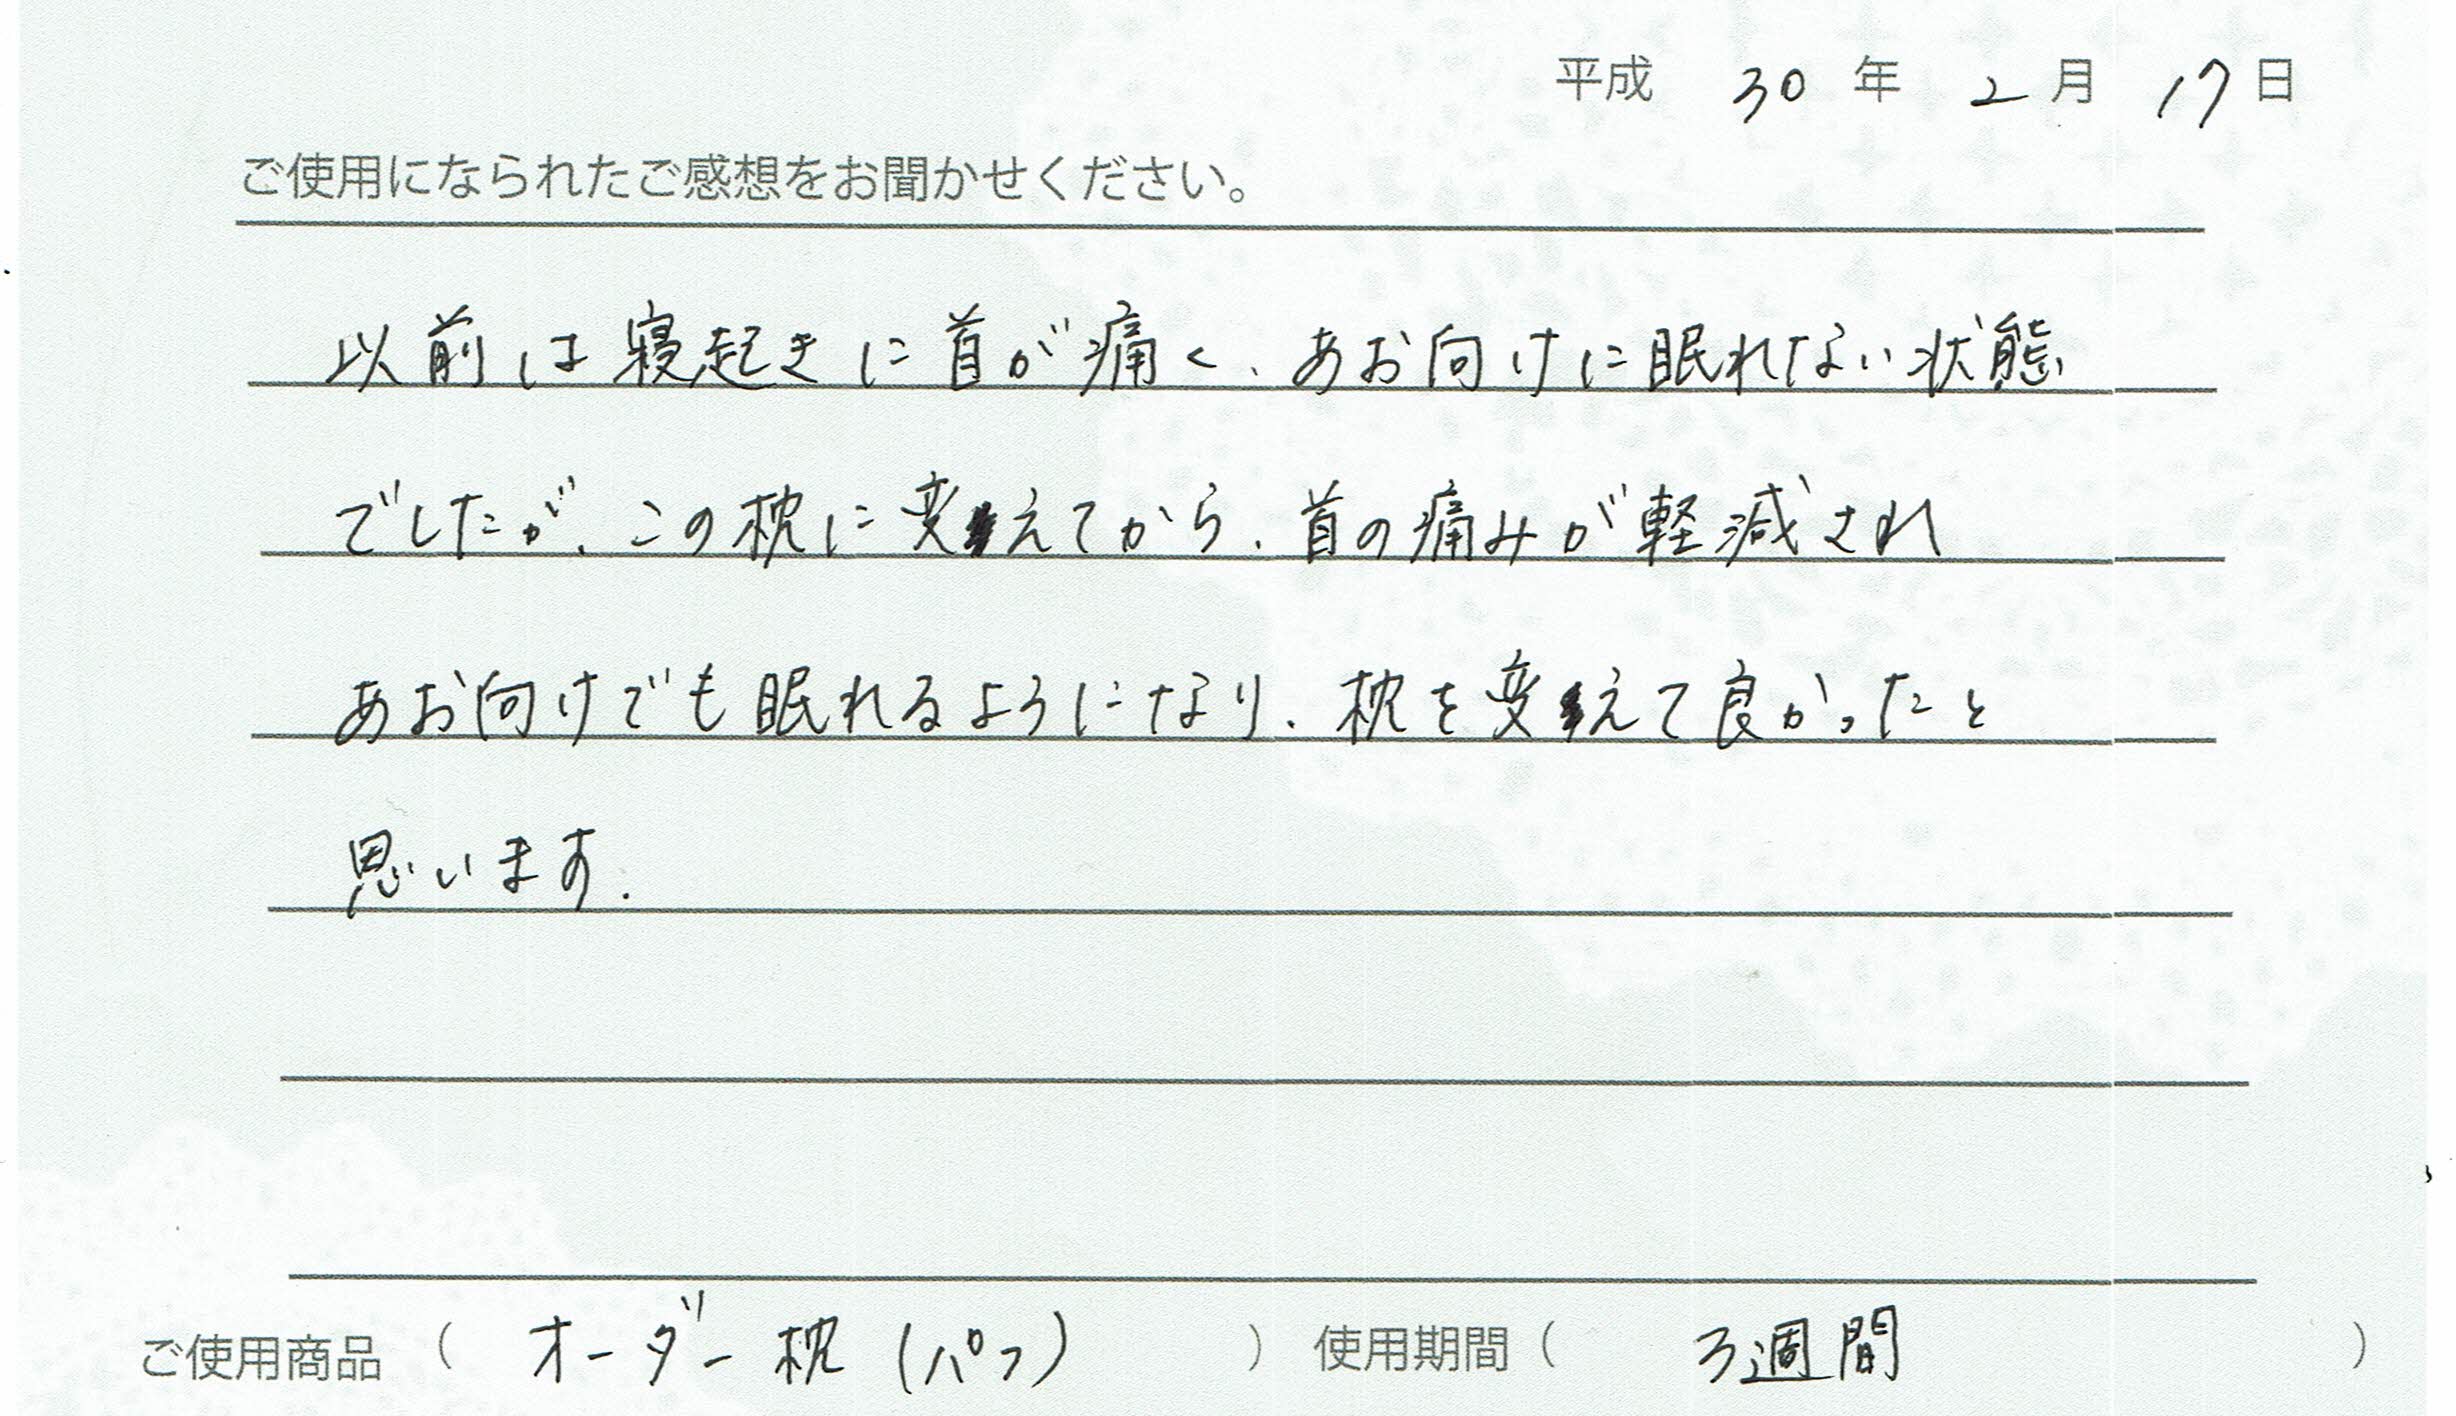 平成 30 年 2 月 17 日
ご使用になられたご感想をお聞かせください。
以前は寝起きに首が痛く、あお向けに眠れない状態
でしたが、この枕に変えてから、首の痛みが軽減され
あお向けでも眠れるようになり、枕を変えて良かったと
思います.
ご使用商品 ( オーダー枕 (パフ) ) 使用期間 ( 3週間 )